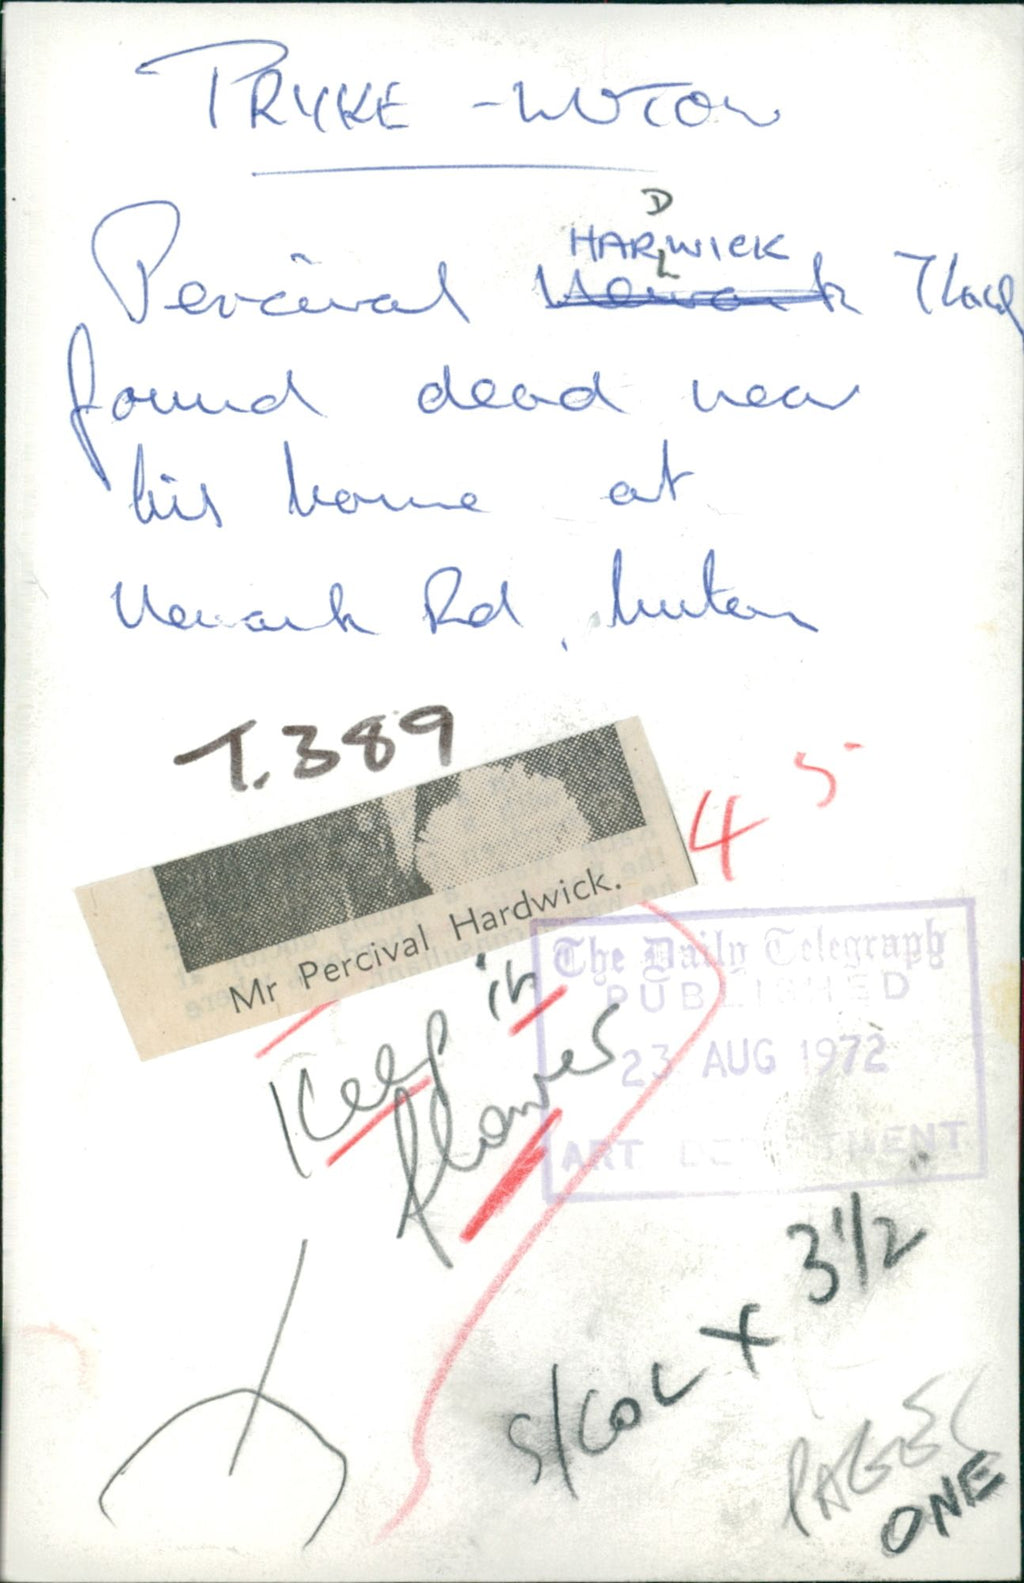 PRYKE - LUTON
D
HARWICK
Percival Newark
found dead near
his home at
Newark Rd, Luton
T.389
45
Mr Percival Hardwick.
Keep in
flowers
The Daily Telegraph
PUBLISHED
23 AUG 1972
ART DEPARTMENT
S/COL X 3 1/2"
PAGE
ONE